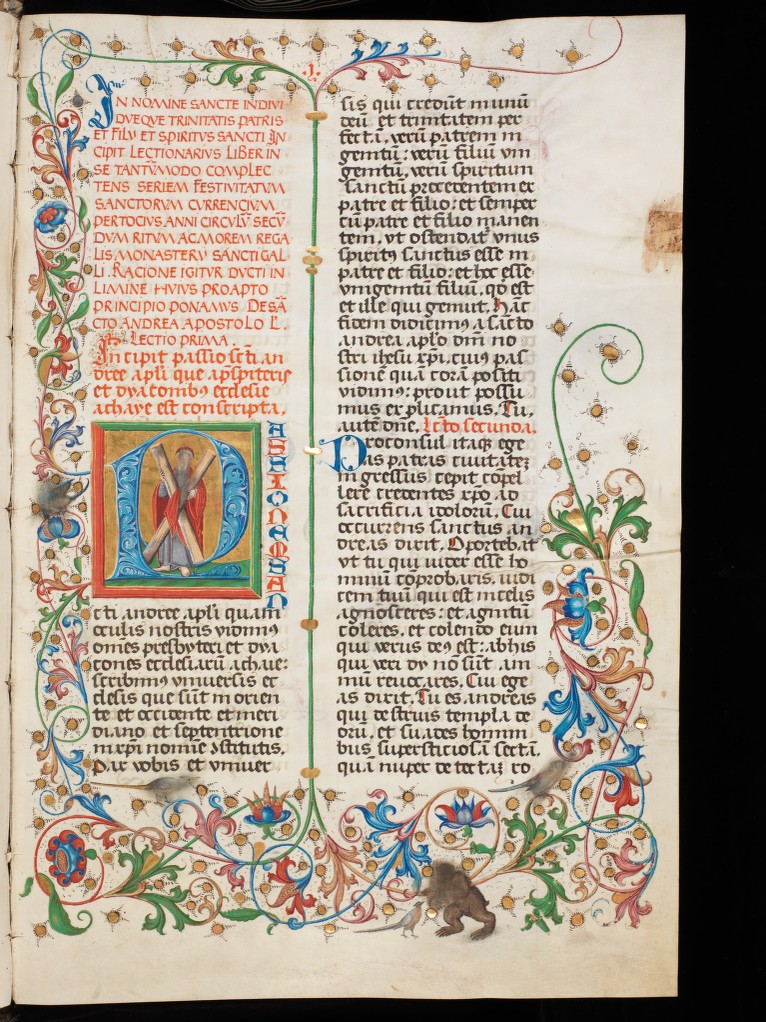 .I.
IN NOMINE SANCTE INDIVI
DVEQVE TRINITATIS PATRIS
ET FILII ET SPIRITVS SANCTI IN
CIPIT LECTIONARIVS LIBER IN
SE TANTV̄MODO COMPLEC
TENS SERIEM FESTIVITATVM
SANCTORVM CVRRENCIVM
PER TOCIVS ANNI CIRCVLV̄ SECV̄
DVM RITVM AC MOREM REGA
LIS MONASTERII SANCTI GAL
LI. RACIONE IGITVR DVCTI IN
LIMINE HVIVS PRO APTO
PRINCIPIO PONAMVS DE SĀ
CTO ANDREA APOSTOLO
LECTIO PRIMA.
Incipit passio scti an
dree apli que a p̄spiteris
et dyaconibꝰ ecclesie
achaye est conscripta.
PASSIONEM SAN
cti andree apli quam
oculis nostris vidimꝰ
om̄es presbyteri et dya
cones ecclesiarū achaie:
scribimꝰ vniuersis ec
clesiis que sūt in orien
te et occidente et meri
diano et septentrione
in xp̄i nomīe ꝯstitutis.
Pax vobis et vniuer
sis qui credūt in unū
deū et trinitatem per
fectā, verū patrem in
genitū: verū filiū vni
genitū, verū spiritum
sanctū procedentem ex
patre et filio: et semper
cū patre et filio manen
tem, vt ostendat vnus
spiritꝰ sanctus esse in
patre et filio: et hoc esse
vnigenitū filiū, qd̄ est
et ille qui genuit. Hāc
fidem didicimꝰ a sācto
andrea aplo dn̄i no
stri ihesu xp̄i, cuiꝰ pas
sionē quā corā positi
vidimꝰ: prout possu
mus explicamus. Tu
autē dn̄e. Lcͨto secunda.
Proconsul itaqꝫ ege
as patras ciuitatēꝫ
ingressus cepit cōpel
lere credentes xp̄o ad
sacrificia idolorū. Cui
occurrens sanctus an
dreas dixit. Oportebat
vt tu qui iudex esse ho
minū cōprobaris, iudi
cem tuū qui est in celis
agnosceres: et agnitū
cōleres, et colendo eum
qui verus deꝰ est: ab his
qui veri dy nō sūt ani
mū reuocares. Cui ege
as dixit. Tu es andreas
qui destruis templa de
orū, et suades homini
bus supersticiosā sectā
quā nuper detectāꝫ ro